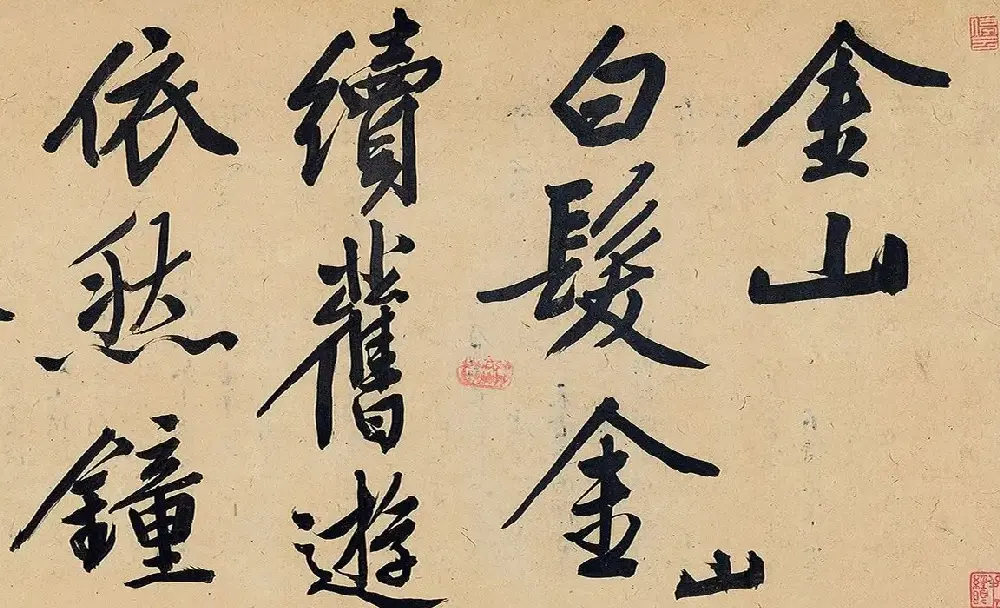 金山
白髮金山
續舊遊
依然鐘